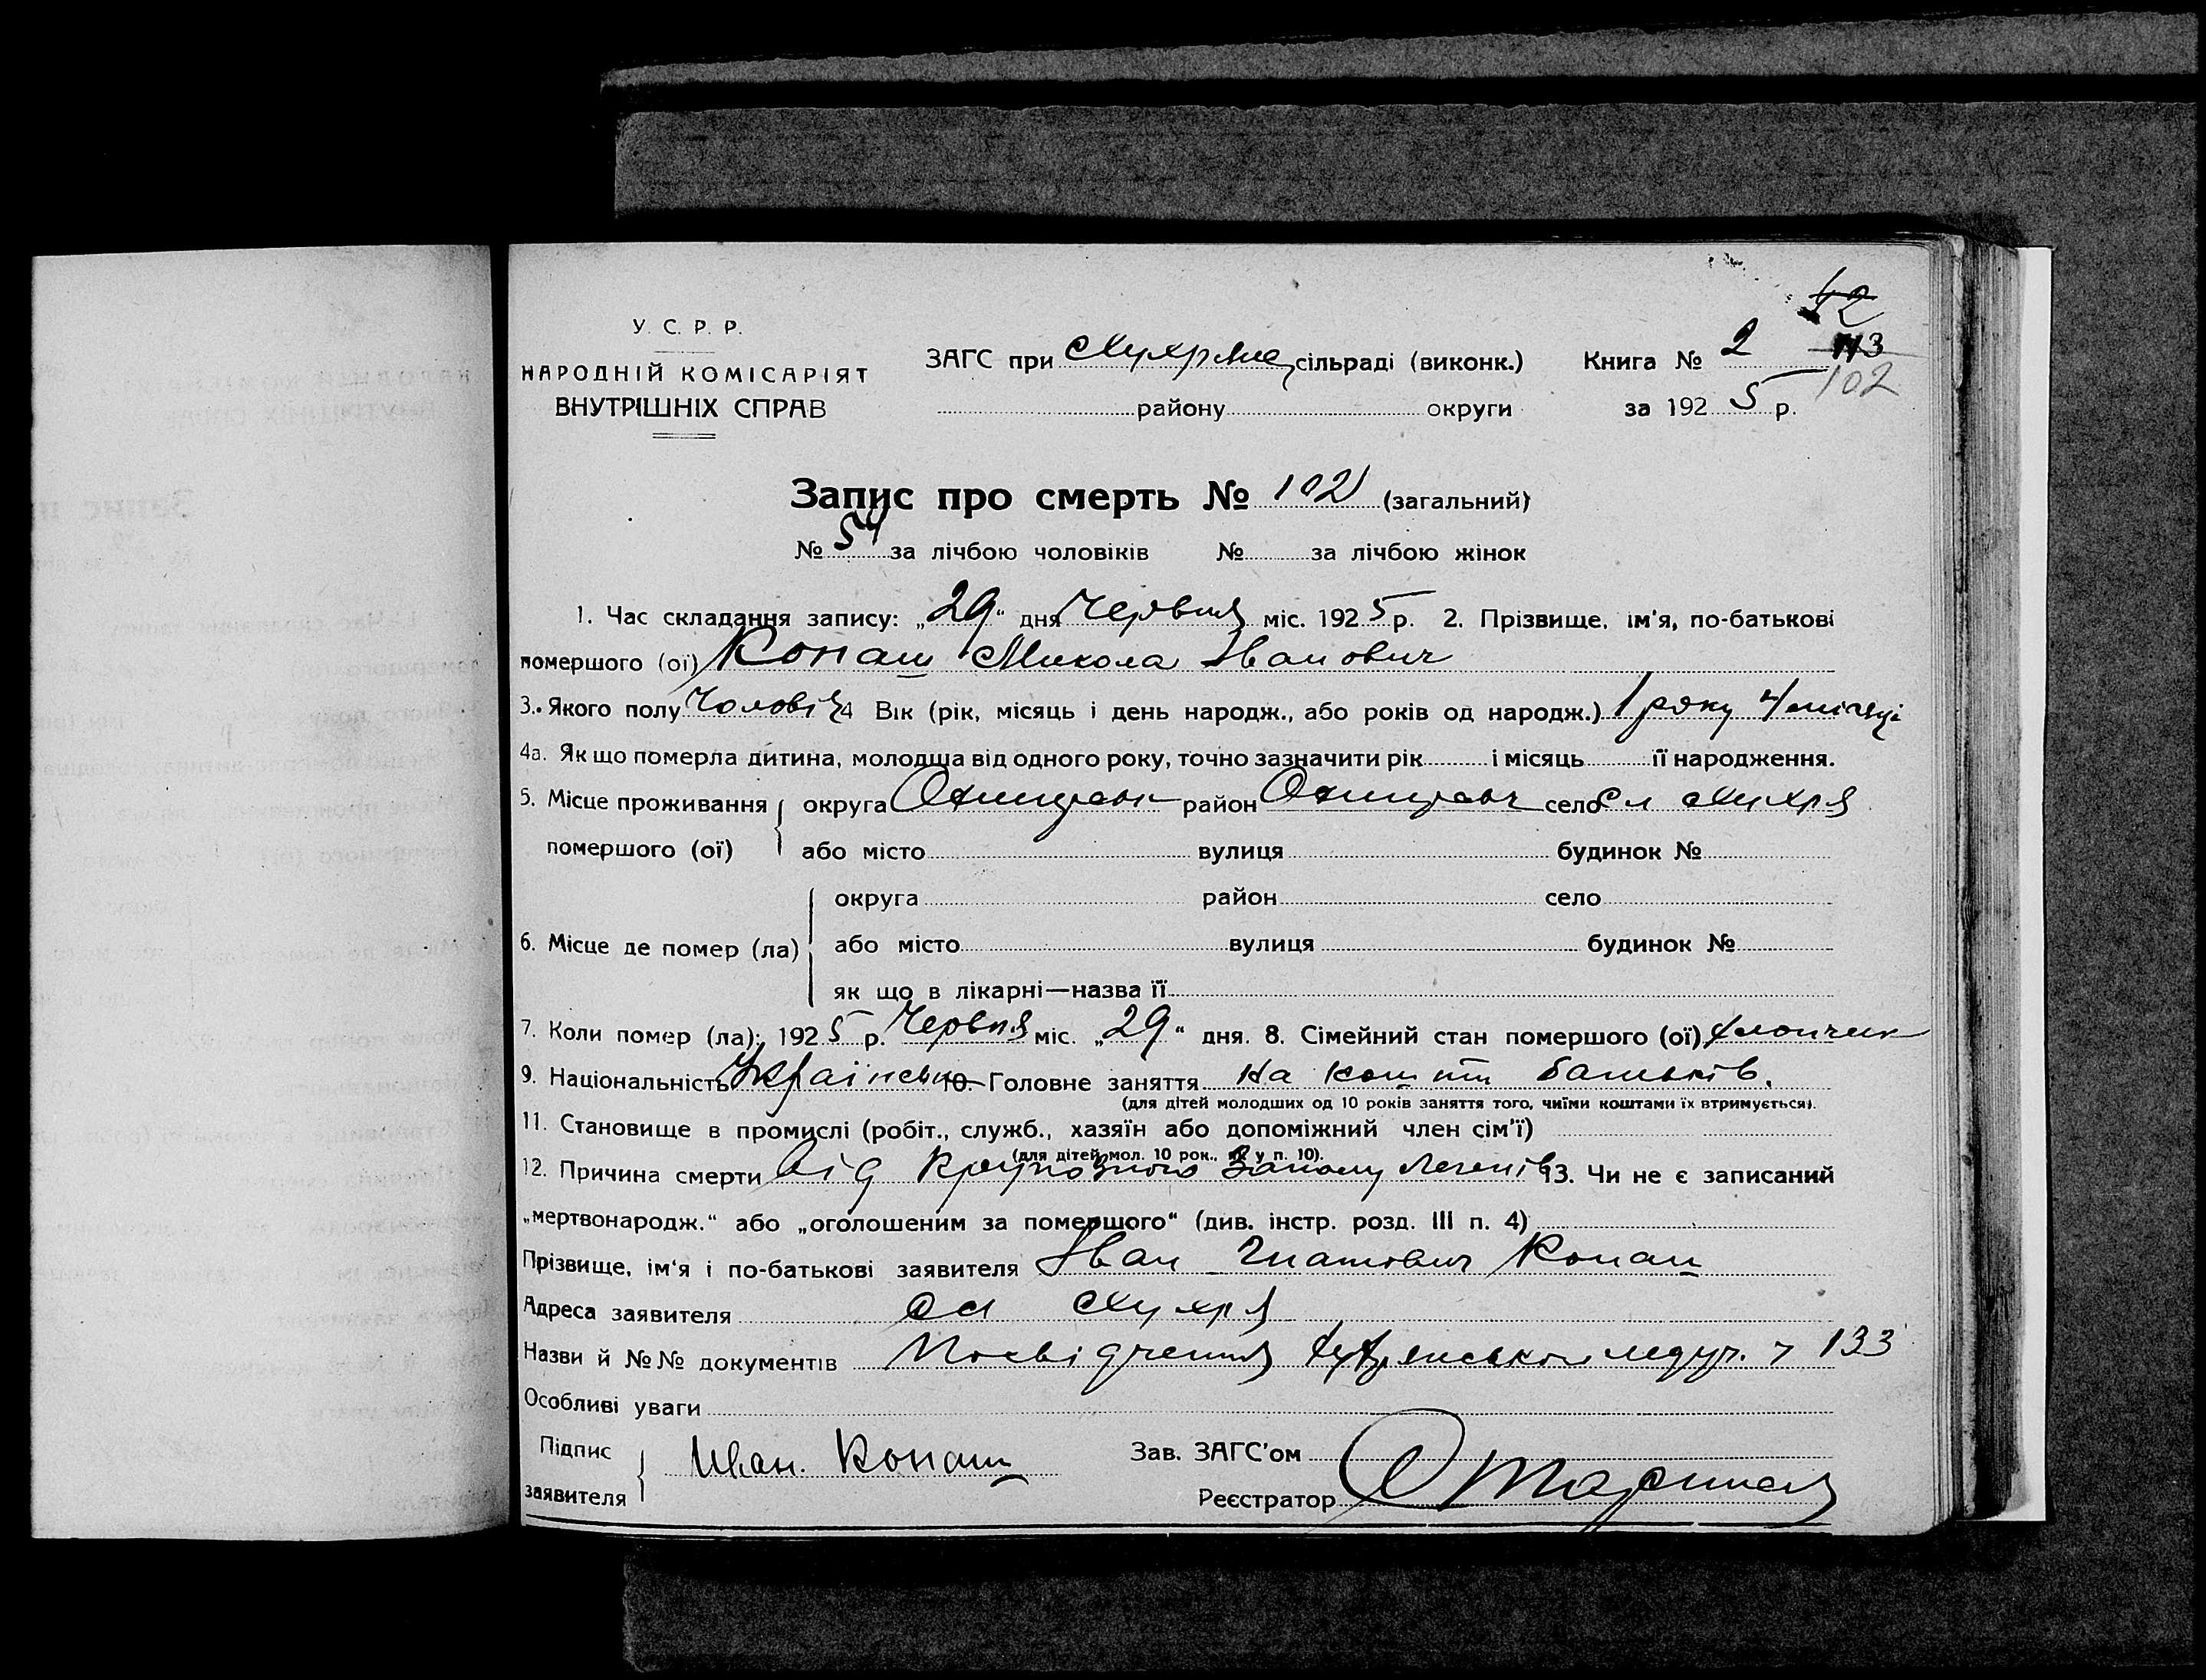 42
У. С. Р. Р.
НАРОДНІЙ КОМІСАРІЯТ
ВНУТРІШНІХ СПРАВ
ЗАГС при сільраді (виконк.) Книга № 2 113
102
району округи за 192 5 р.
Запис про смерть № 102 (загальний)
№ 54 за лічбою чоловіків № за лічбою жінок
1. Час складання запису: „29“ дня Червня міс. 192 5 р. 2. Прізвище, ім'я, по-батькові
помершого (ої) Конаш Микола Іванович
3. Якого полу Чоловіч 4 Вік (рік, місяць і день народж., або років од народж.) 1 року 4 місяці
4а. Як що померла дитина, молодша від одного року, точно зазначити рік і місяць її народження.
5. Місце проживання округа район село сл
помершого (ої) або місто вулиця будинок №
округа район село
6. Місце де помер (ла) або місто вулиця будинок №
як що в лікарні—назва її
7. Коли помер (ла): 192 5 р. Червня міс. „29“ дня. 8. Сімейний стан помершого (ої) хлопчик
9. Національність 10. Головне заняття на кошти батьків.
(для дітей молодших од 10 років заняття того, чиїми коштами їх втримується).
11. Становище в промислі (робіт., служб., хазяїн або допоміжний член сім'ї)
(для дітей мол. 10 рок., як у п. 10).
12. Причина смерти від Крупозного запалу легенів 13. Чи не є записаний
„мертвонародж.“ або „оголошеним за помершого“ (див. інстр. розд. III п. 4)
Прізвище, ім'я і по-батькові заявителя Іван Гнатович Конаш
Адреса заявителя сл
Назви й №№ документів Посвідчення 133
Особливі уваги
Підпис
заявителя Иван. Конаш
Зав. ЗАГС'ом
Реєстратор